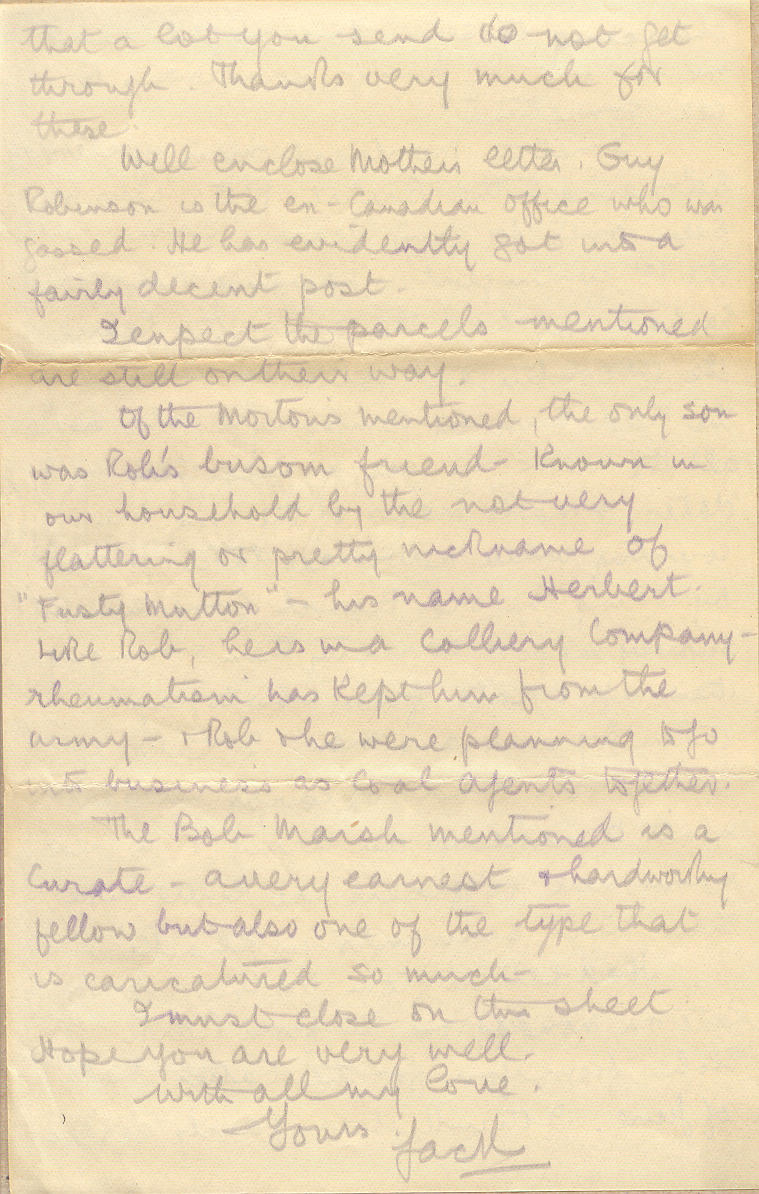 that a lot you send do not get
through. Thanks very much for
these.
Well enclose Mother's letter. Guy
Robinson is the ex-Canadian office who was
gassed. He has evidently got into a
fairly decent post.
I expect the parcels mentioned
are still on their way.
Of the Morton's mentioned, the only son
was Rob's busom friend - Known in
our household by the not very
flattering or pretty nickname of
"Fusty Mutton" - his name Herbert.
Like Rob, he is in a Colliery Company -
rheumatism has kept him from the
army - & Rob & he were planning to go
into business as Coal Agents together.
The Bob Marsh mentioned is a
Curate - a very earnest & hardworking
fellow but also one of the type that
is caricatured so much -
I must close on this sheet
Hope you are very well.
With all my love.
Yours Jack